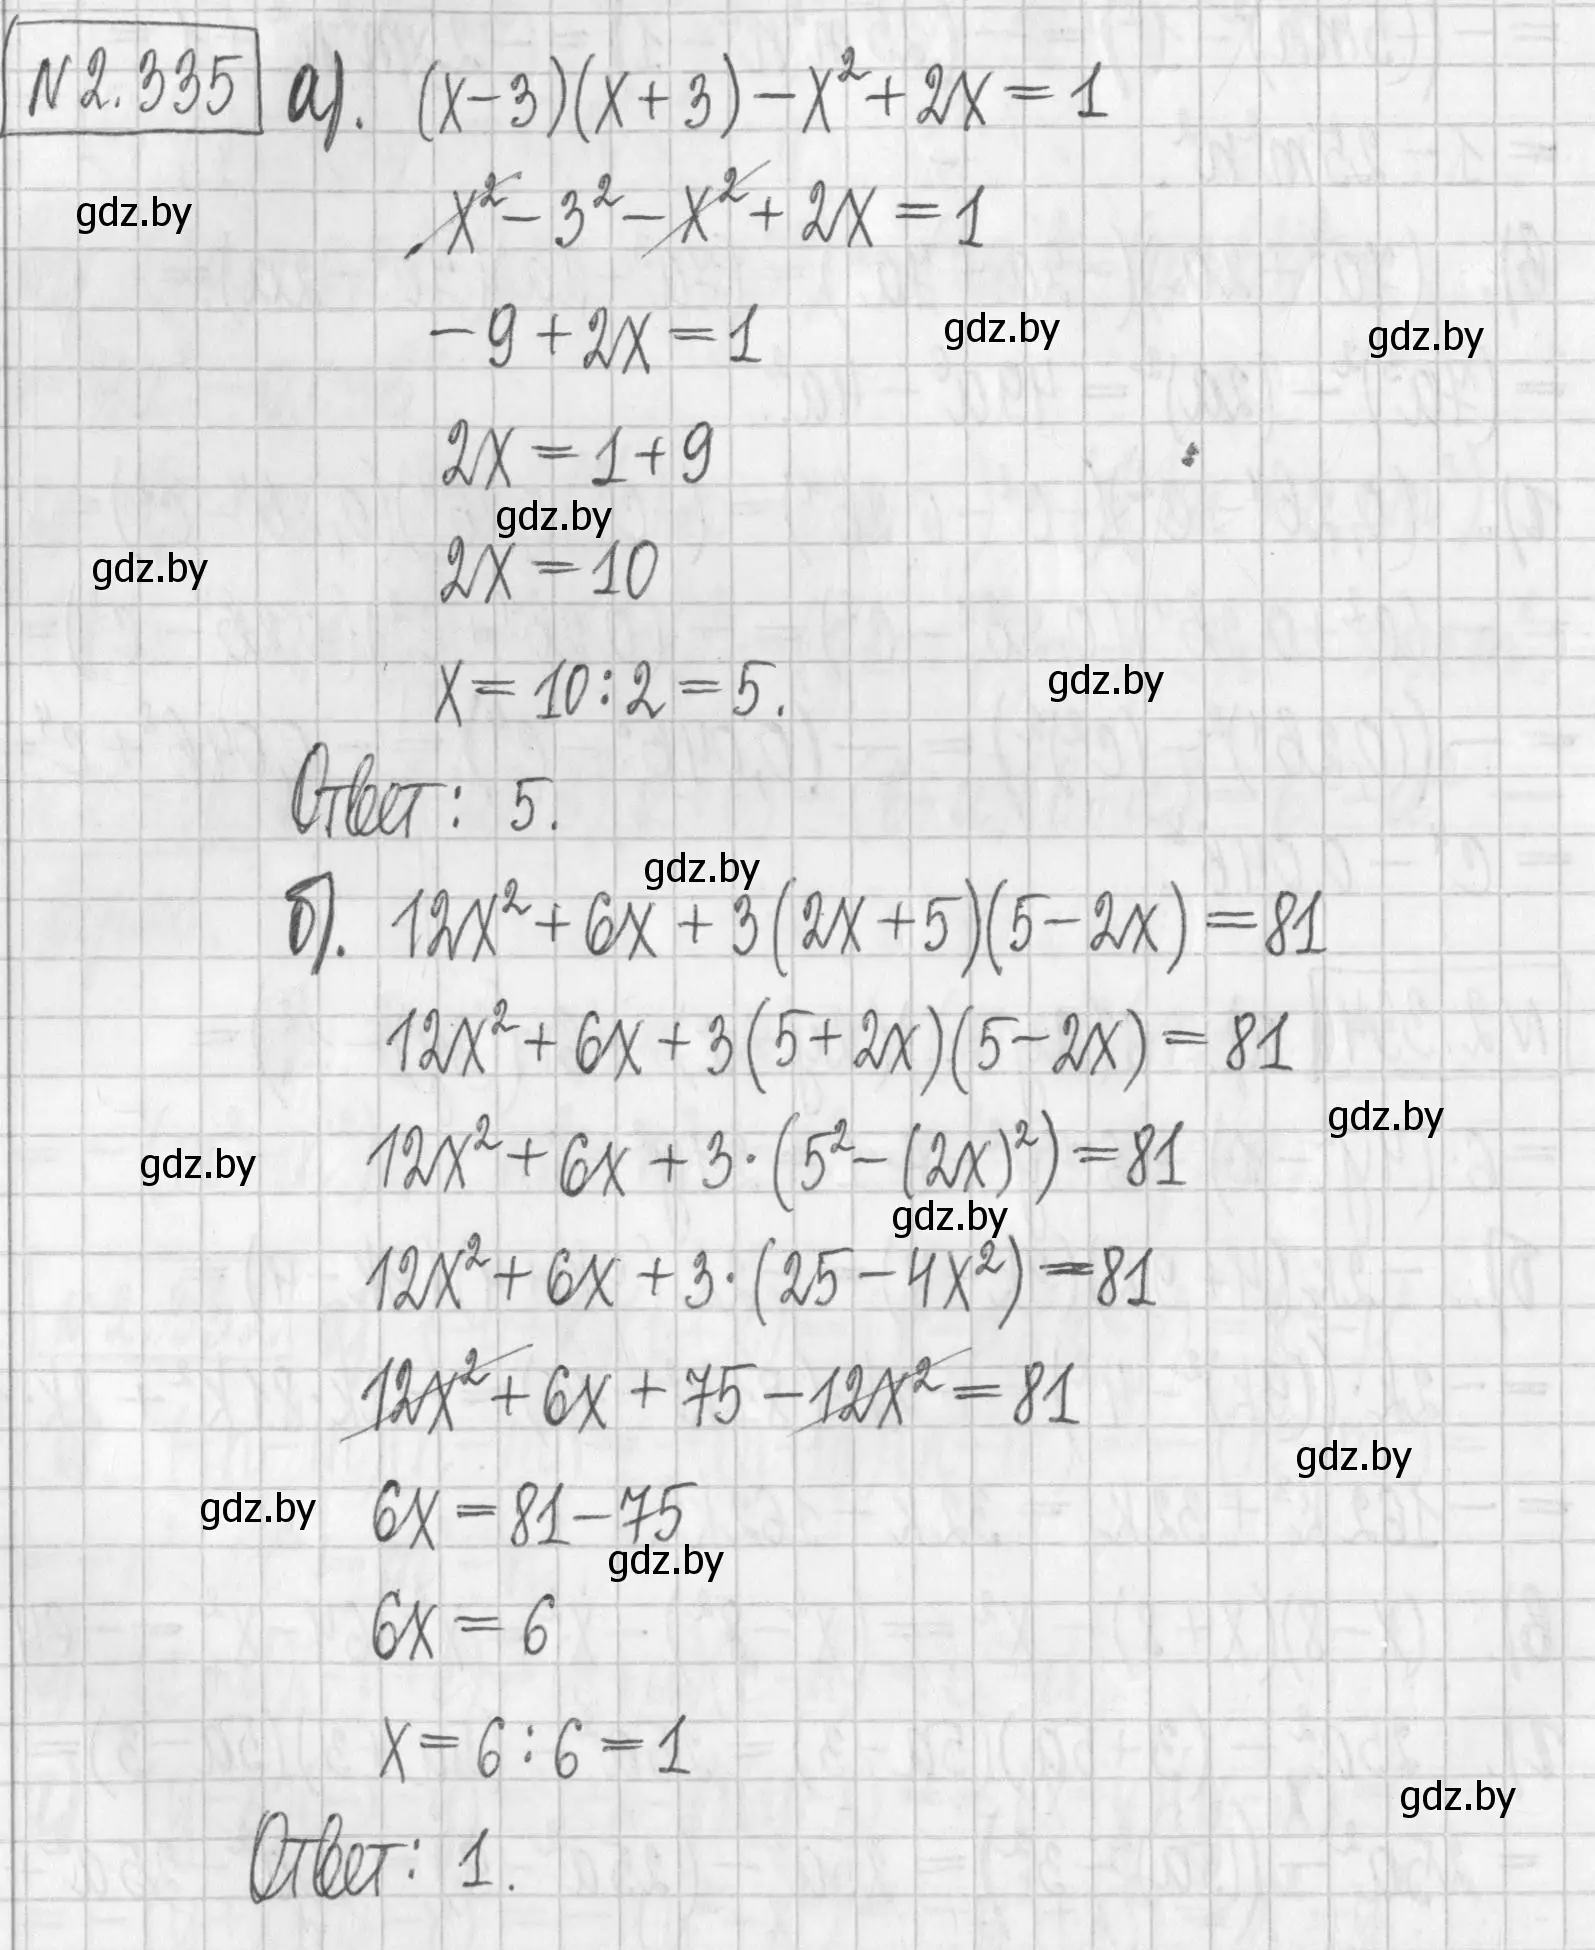 N 2.335 а). (x-3)(x+3)-x²+2x=1
gdz.by x²-3²-x²+2x=1
-9+2x=1 gdz.by gdz.by
2x=1+9
gdz.by
gdz.by 2x=10
x=10:2=5. gdz.by
Ответ: 5.
gdz.by
б). 12x²+6x+3(2x+5)(5-2x)=81
12x²+6x+3(5+2x)(5-2x)=81
gdz.by
gdz.by 12x²+6x+3·(5²-(2x)²)=81
gdz.by
12x²+6x+3·(25-4x²)=81
12x²+6x+75-12x²=81
gdz.by
gdz.by 6x=81-75
gdz.by
6x=6
x=6:6=1
gdz.by
Ответ: 1.